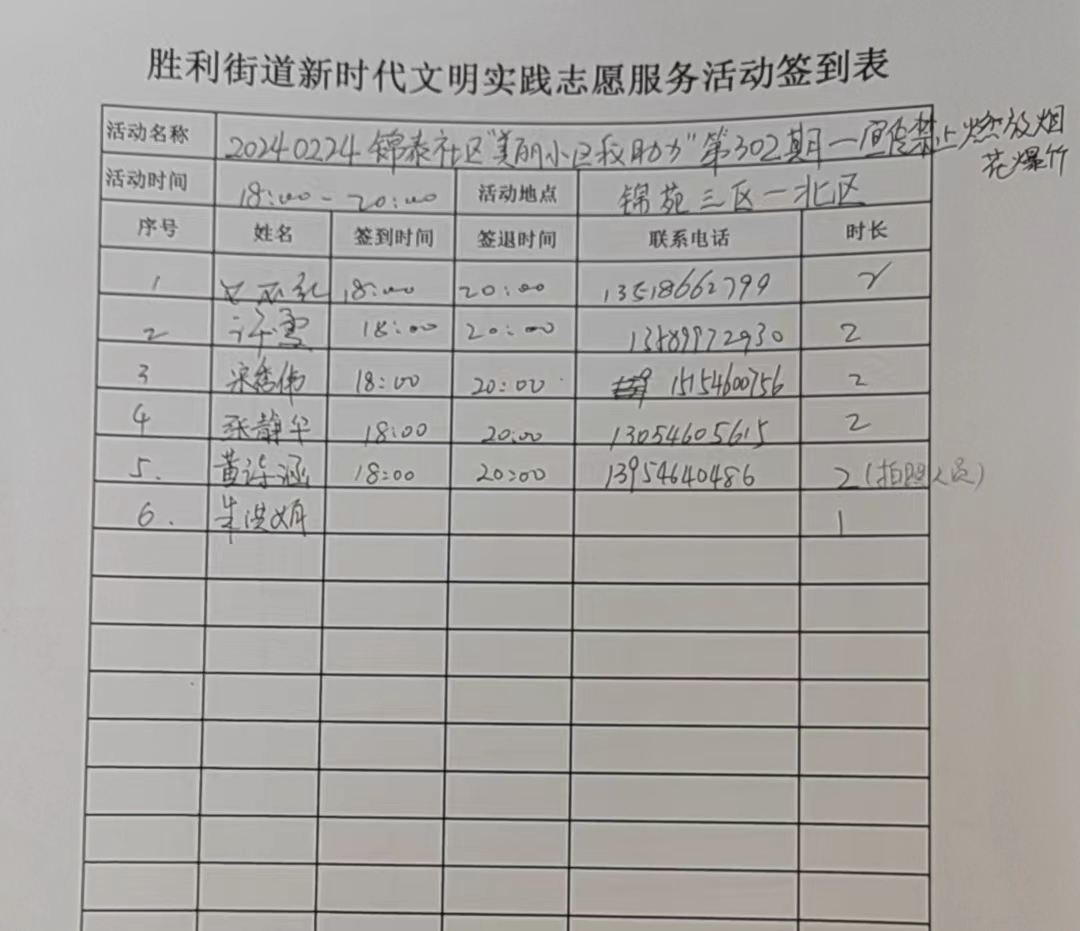 胜利街道新时代文明实践志愿服务活动签到表
活动名称 20240224锦泰社区"美丽小区我助力"第302期—宣传禁止燃放烟
花爆竹
活动时间 18:00-20:00 活动地点 锦苑三区—北区
序号 姓名 签到时间 签退时间 联系电话 时长
1 18:00 20:00 13518662799 2
2 许雪 18:00 20:00 13589972930 2
3 宋秀伟 18:00 20:00 15154600756 2
4 张静华 18:00 20:00 13054605615 2
5. 黄诗涵 18:00 20:00 13954640486 2(拍照人员)
6. 朱洪娟 1